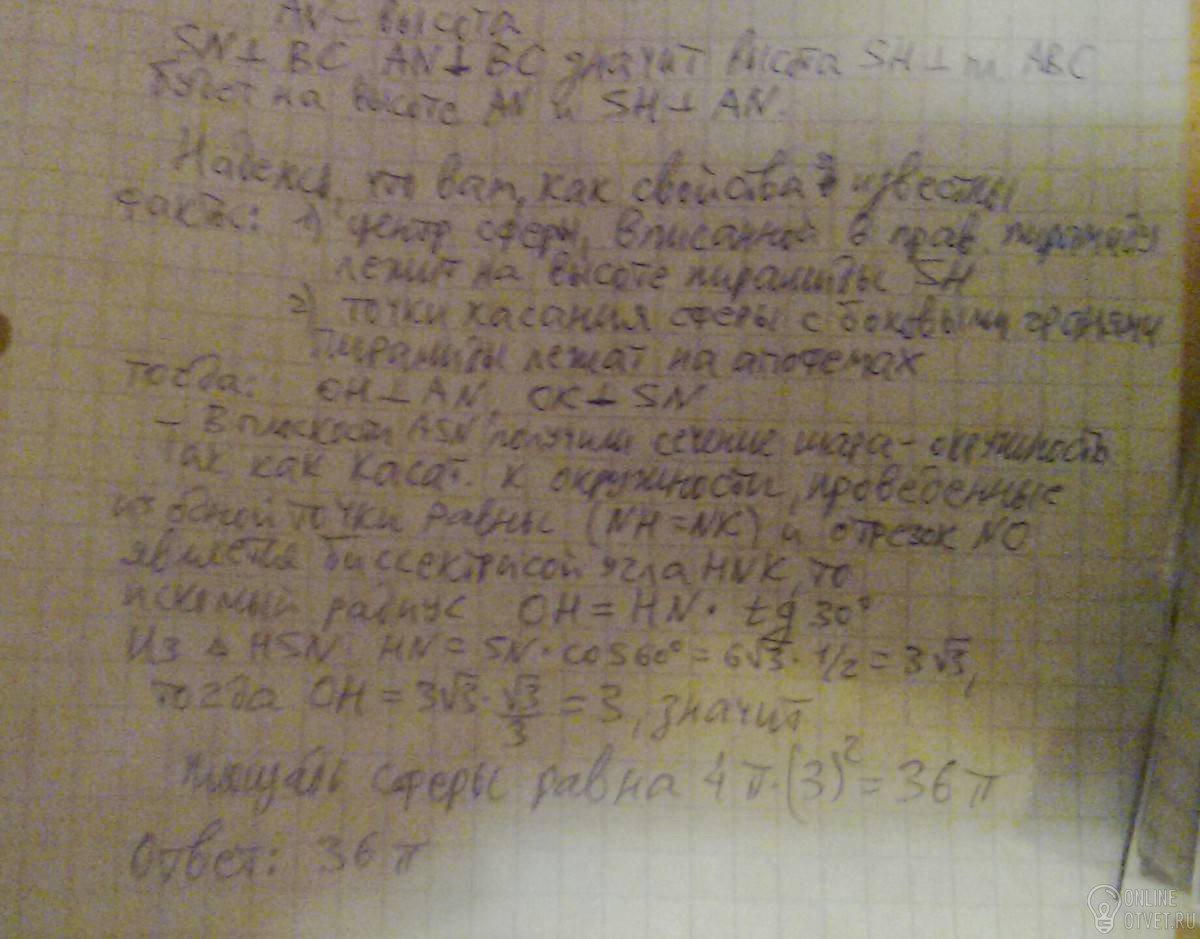 AN – высота
SN ⊥ BC AN ⊥ BC значит высота SH ⊥ пл. ABC
будет на высоте AN и SH ⊥ AN.
Надеюсь, что вам, как свойства, известны
факты: 1) центр сферы, вписанной в прав. пирамиду
лежит на высоте пирамиды SH
2) точки касания сферы с боковыми гранями
пирамиды лежат на апофемах
тогда: OH ⊥ AN, OK ⊥ SN
– В плоскости ASN получили сечение шара – окружность
Так как касат. к окружности, проведенные
из одной точки равны (NH = NK) и отрезок NO
является биссектрисой угла HNK, то
искомый радиус OH = HN · tg 30°
Из △ HSN HN = SN · cos 60° = 6√3 · 1/2 = 3√3,
тогда OH = 3√3 · √3/3 = 3, значит
площадь сферы равна 4π · (3)² = 36π
Ответ: 36π
ONLINE
OTVET.RU